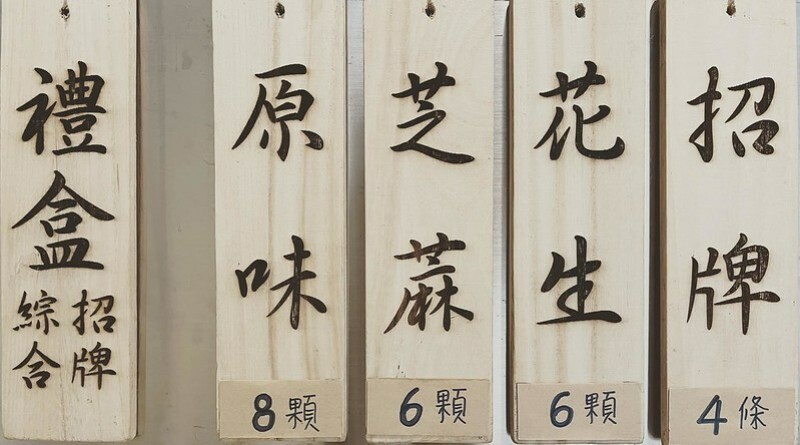 招牌
4條
花生
6顆
芝蔴
6顆
原味
8顆
禮盒
招牌
綜合